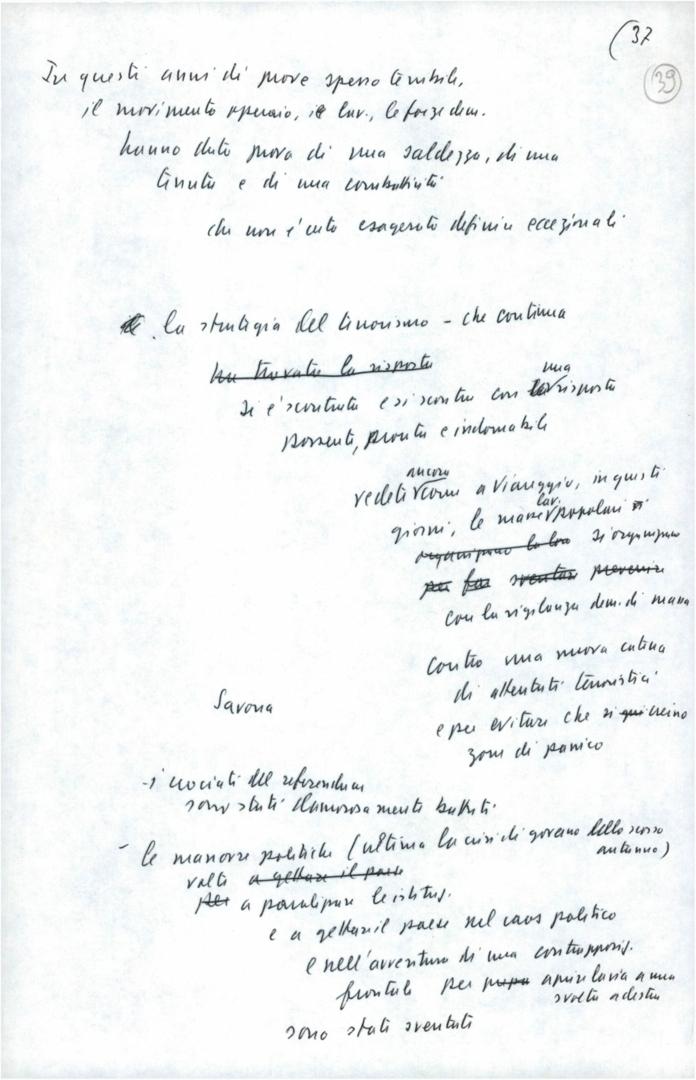 (37
39
In questi anni di prove spesso terribili,
il movimento operaio, i lav., le forze dem.
hanno dato prova di una saldezza, di una
tenuta e di una combattività
che non è certo esagerato definire eccezionali
. la strategia del terrorismo – che continua
ha trovato la risposta
una
si è scontrata e si scontra con risposta
possente, pronta e indomabile
ancora
vedete come a Viareggio, in questi
lav.
giorni, le masse popolari si
organizzano la loro si organizzano
per far sventare prevenire
con la vigilanza dem. di massa
contro una nuova catena
di attentati terroristici
Savona
e per evitare che si qui creino
zone di panico
- i crociati del referendum
sono stati clamorosamente battuti
- le manovre politiche (ultima la crisi di governo dello scorso
autunno)
volte a gettare il paese
per a paralizzare le istituz.
e a gettare il paese nel caos politico
e nell'avventura di una contrapposiz.
frontale per aprire la via a una
svolta a destra
sono stati sventati